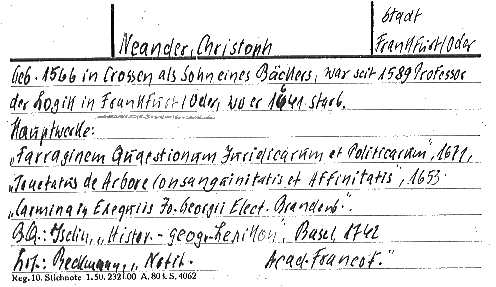 Stadt
Neander, Christoph Frankfurt/Oder
Geb. 1566 in Crossen als Sohn eines Bäckers, war seit 1589 Professor
der Logik in Frankfurt/Oder, wo er 1641 starb.
Hauptwerke:
„Farraginem Quaestionum Juridicarum et Politicarum", 1671,
„Tractatus de Arbore Consanguinitatis et Affinitatis", 1653
„Carmina in Exequiis Jo. Georgii Elect. Brandenb".
B.Q.: Iselin, „Histor.-geogr. Lexikon", Basel, 1742
Beckmann, „Notit. Acad. Francof."
Reg. 10. Stichnote 1. 50. 2321 00 A. 803. S. 4062